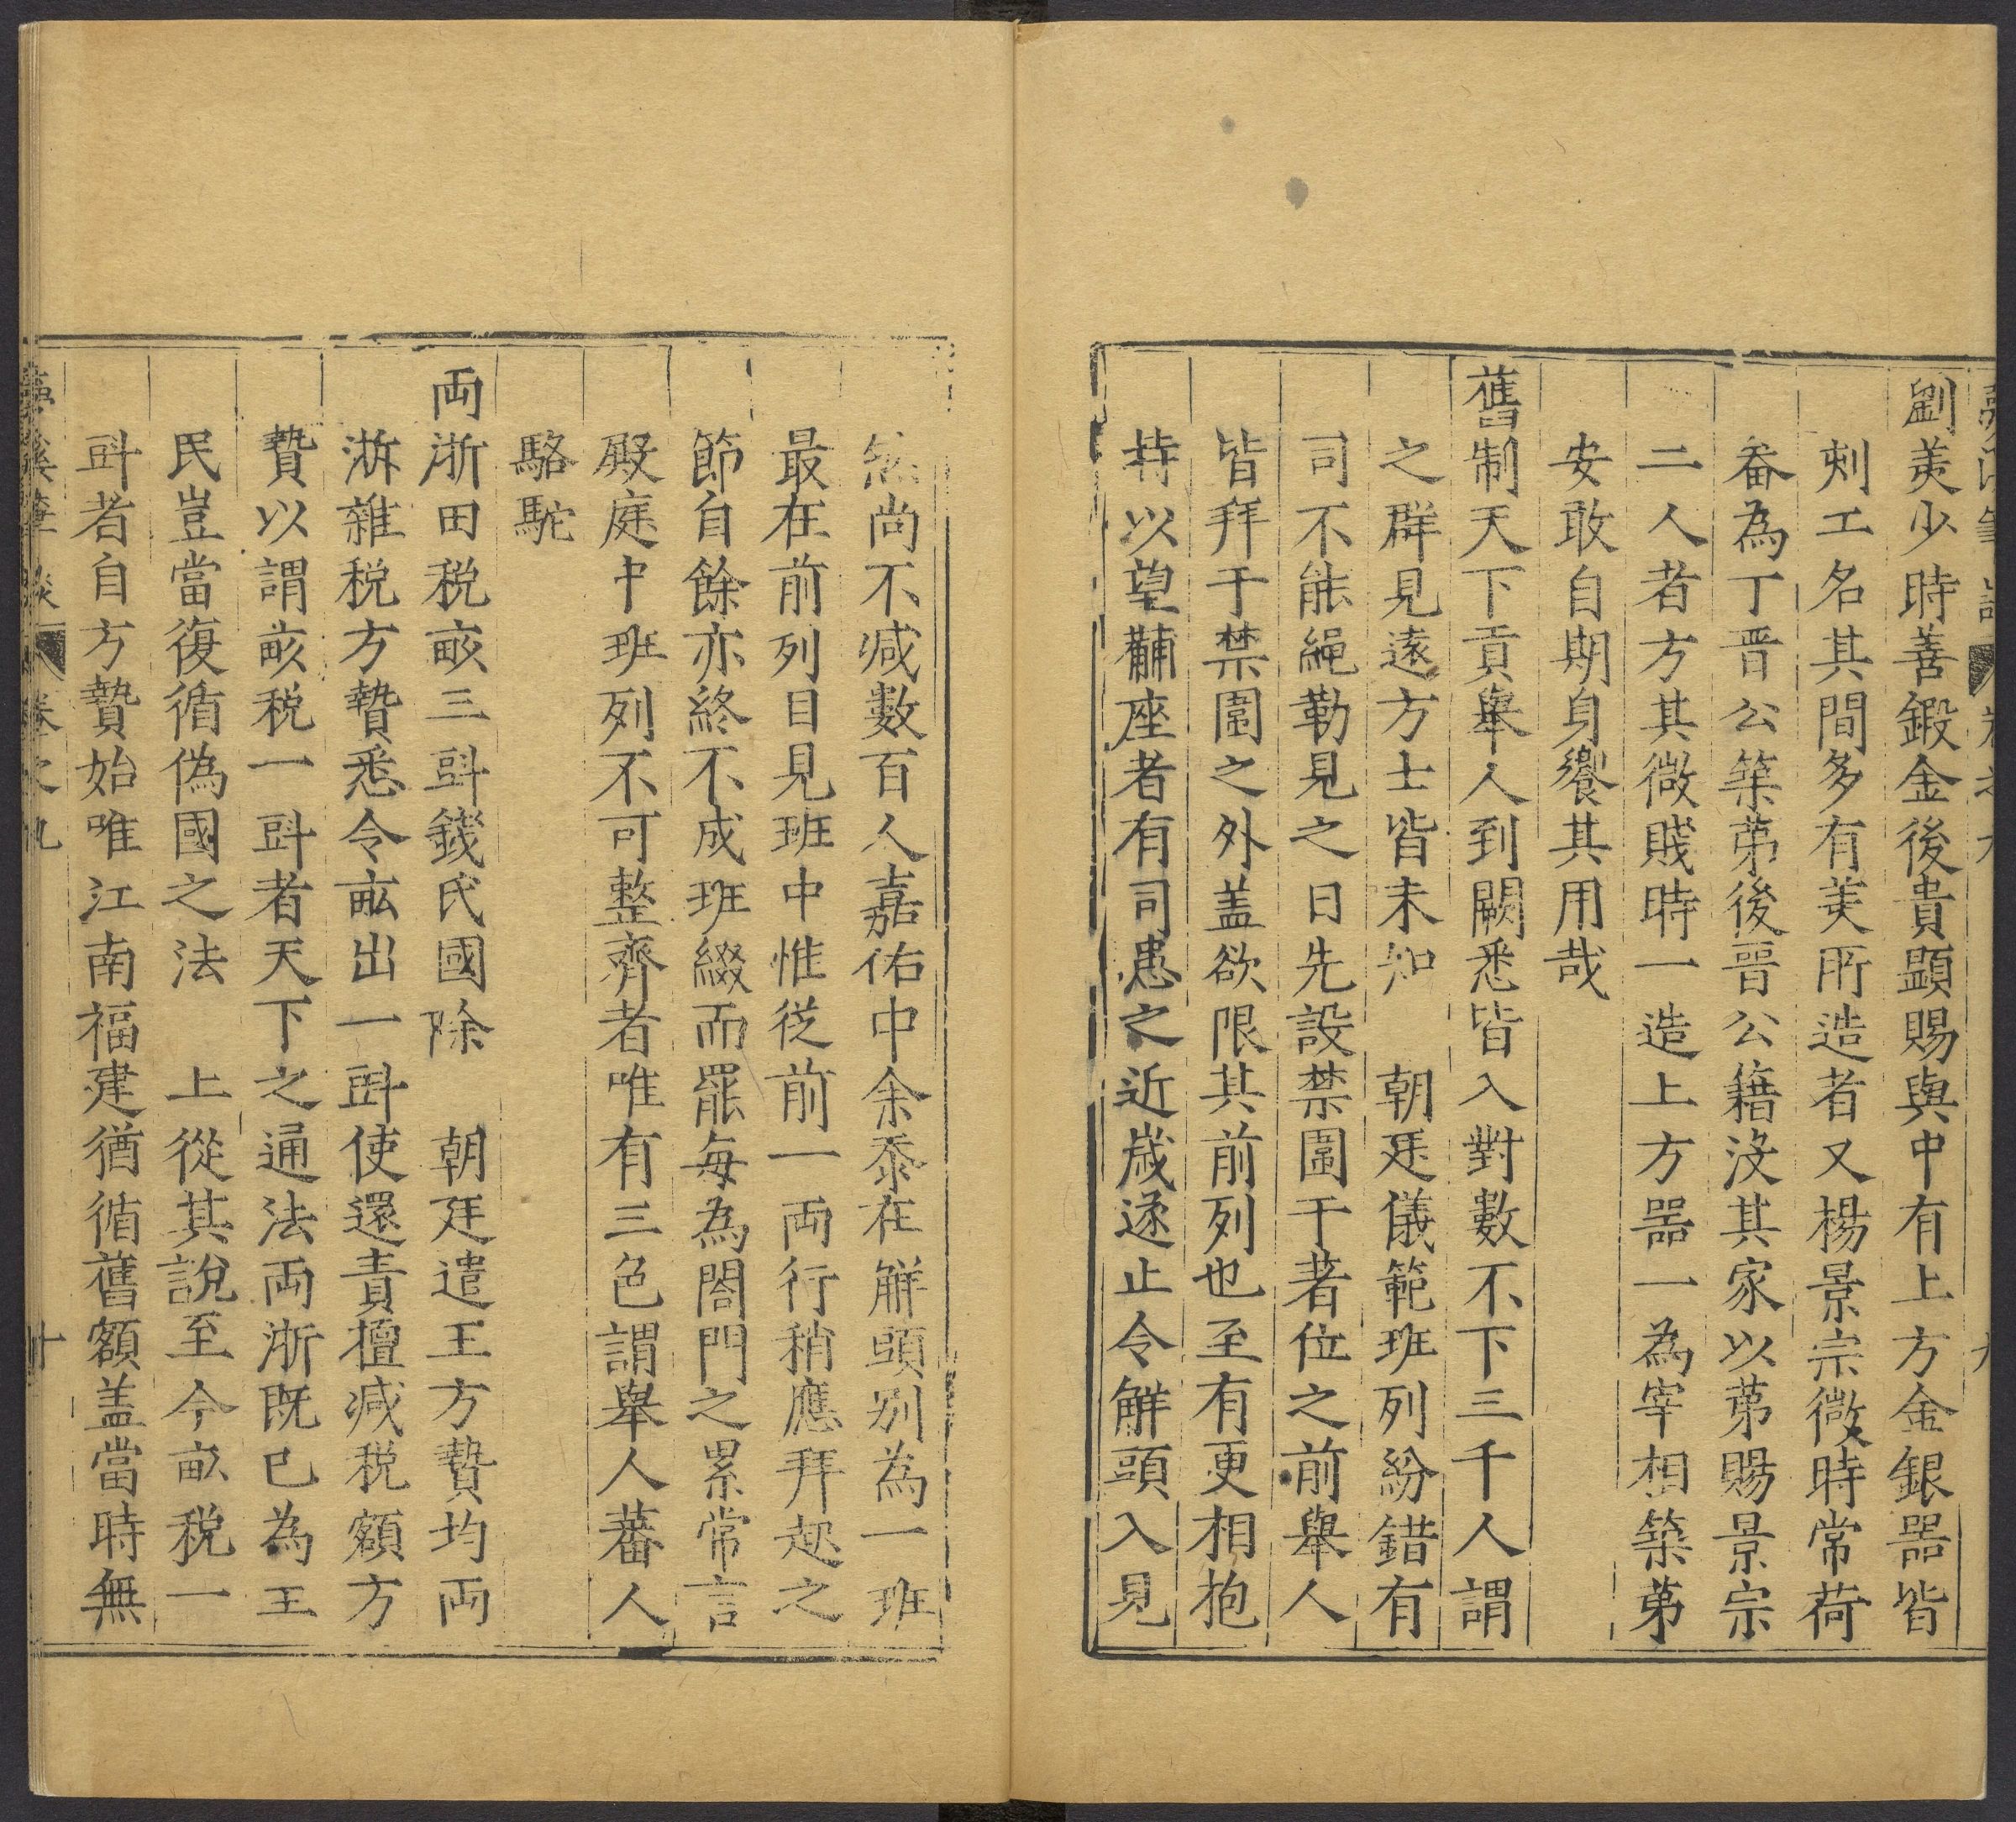 劉美少時善鍛金後貴顯賜與中有上方金銀器皆
刻工名其間多有美所造者又楊景宗微時常荷
畚為丁晉公築苐後晉公籍沒其家以苐賜景宗
二人者方其微賤時一造上方器一為宰相築苐
安敢自期身饗其用哉
舊制天下貢舉人到闕悉皆入對數不下三千人謂
之群見遠方士皆未知　朝廷儀範班列紛錯有
司不能繩勒見之日先設禁圍于著位之前舉人
皆拜于禁圍之外盖欲限其前列也至有更相抱
持以望黼座者有司患之近歲遂止令解頭入見
然尚不減數百人嘉佑中余忝在解頭別為一班
最在前列目見班中惟從前一両行稍應拜起之
節自餘亦終不成班綴而罷每為閤門之累常言
殿庭中班列不可整齊者唯有三色謂舉人蕃人
駱駝
両浙田税畝三㪷錢氏國除　朝廷遣王方贄均両
浙雜税方贄悉令畝出一㪷使還責擅減税額方
贄以謂畝税一㪷者天下之通法両浙既已為王
民豈當復循偽國之法　上從其說至今畝税一
㪷者自方贄始唯江南福建猶循舊額盖當時無
夢溪筆談　卷之九　十